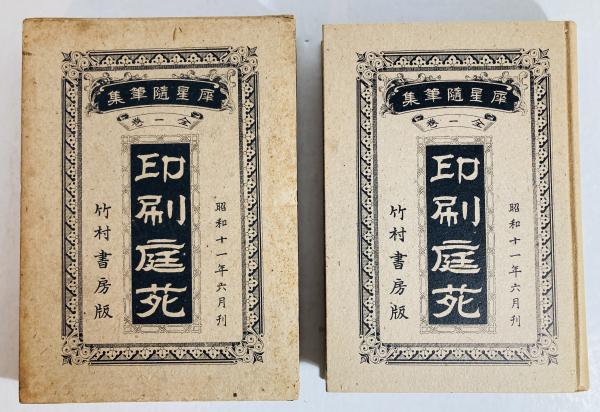 犀星隨筆集
全一卷
昭和十一年六月刊
印刷庭苑
竹村書房版
犀星隨筆集
全一卷
昭和十一年六月刊
印刷庭苑
竹村書房版